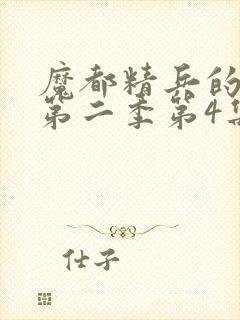 魔都精兵的
第二季第4集
仕子